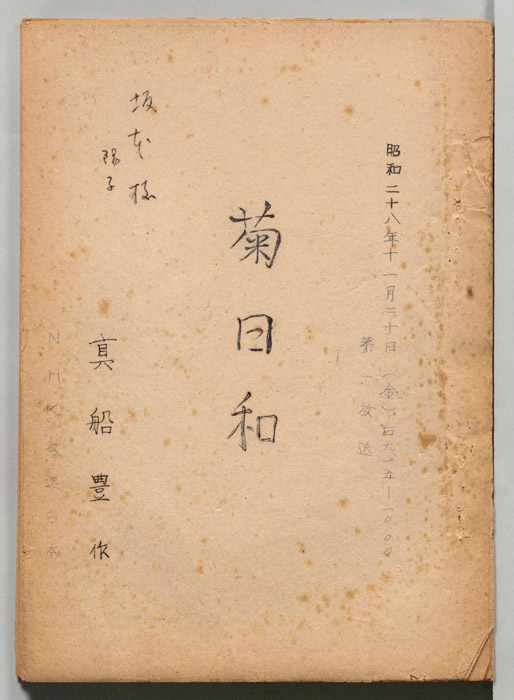 昭和二十八年十一月二十日(金)后
第一放送
菊日和
坂本様
陽子
真船豊作
NHK放送台本